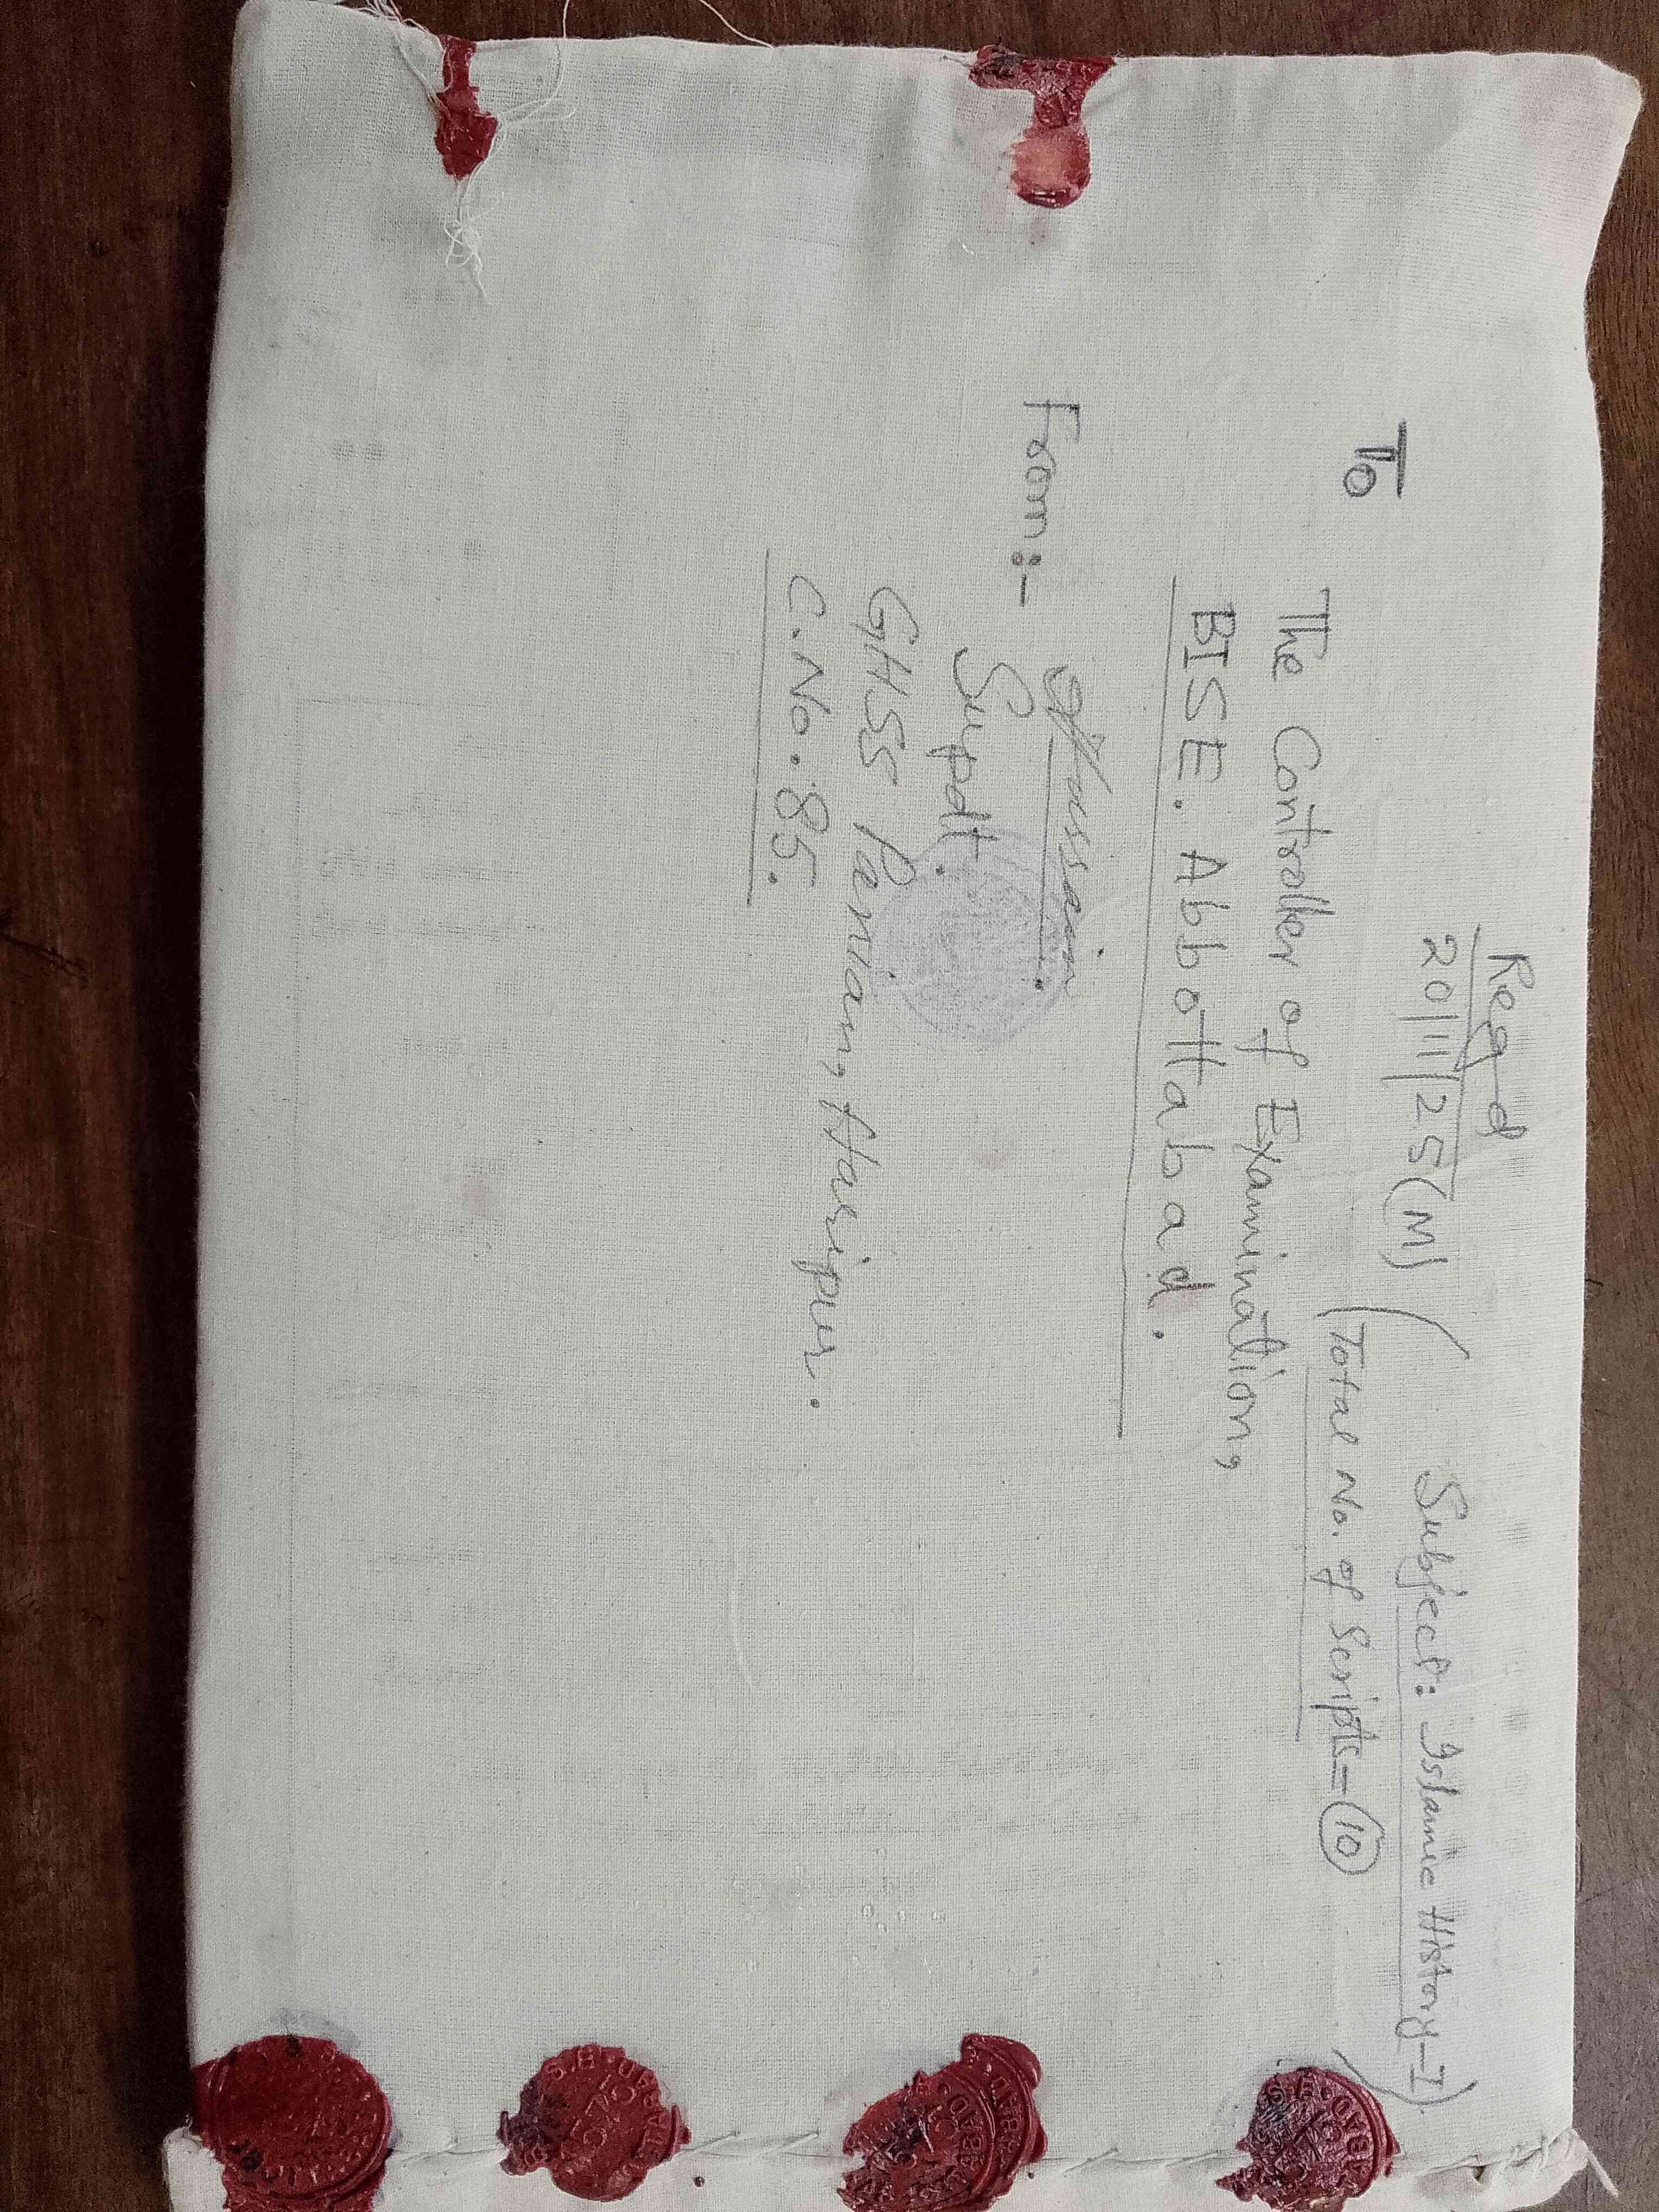 Regd
20/11/25(M)
(Subject: Islamic History-I)
(Total No. of Scripts=10)
To
The Controller of Examination,
BISE. Abbottabad.
From:-
Hussain
Supdt.
GHSS Panian, Haripur.
C.No.85.